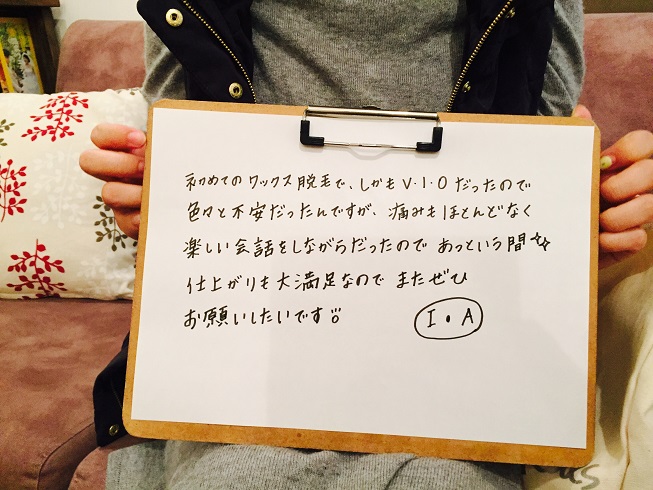 初めてのワックス脱毛で、しかもV・I・Oだったので
色々と不安だったんですが、痛みもほとんどなく
楽しい会話をしながらだったのであっという間☆☆
仕上がりも大満足なのでまたぜひ
お願いしたいです!!
I・A